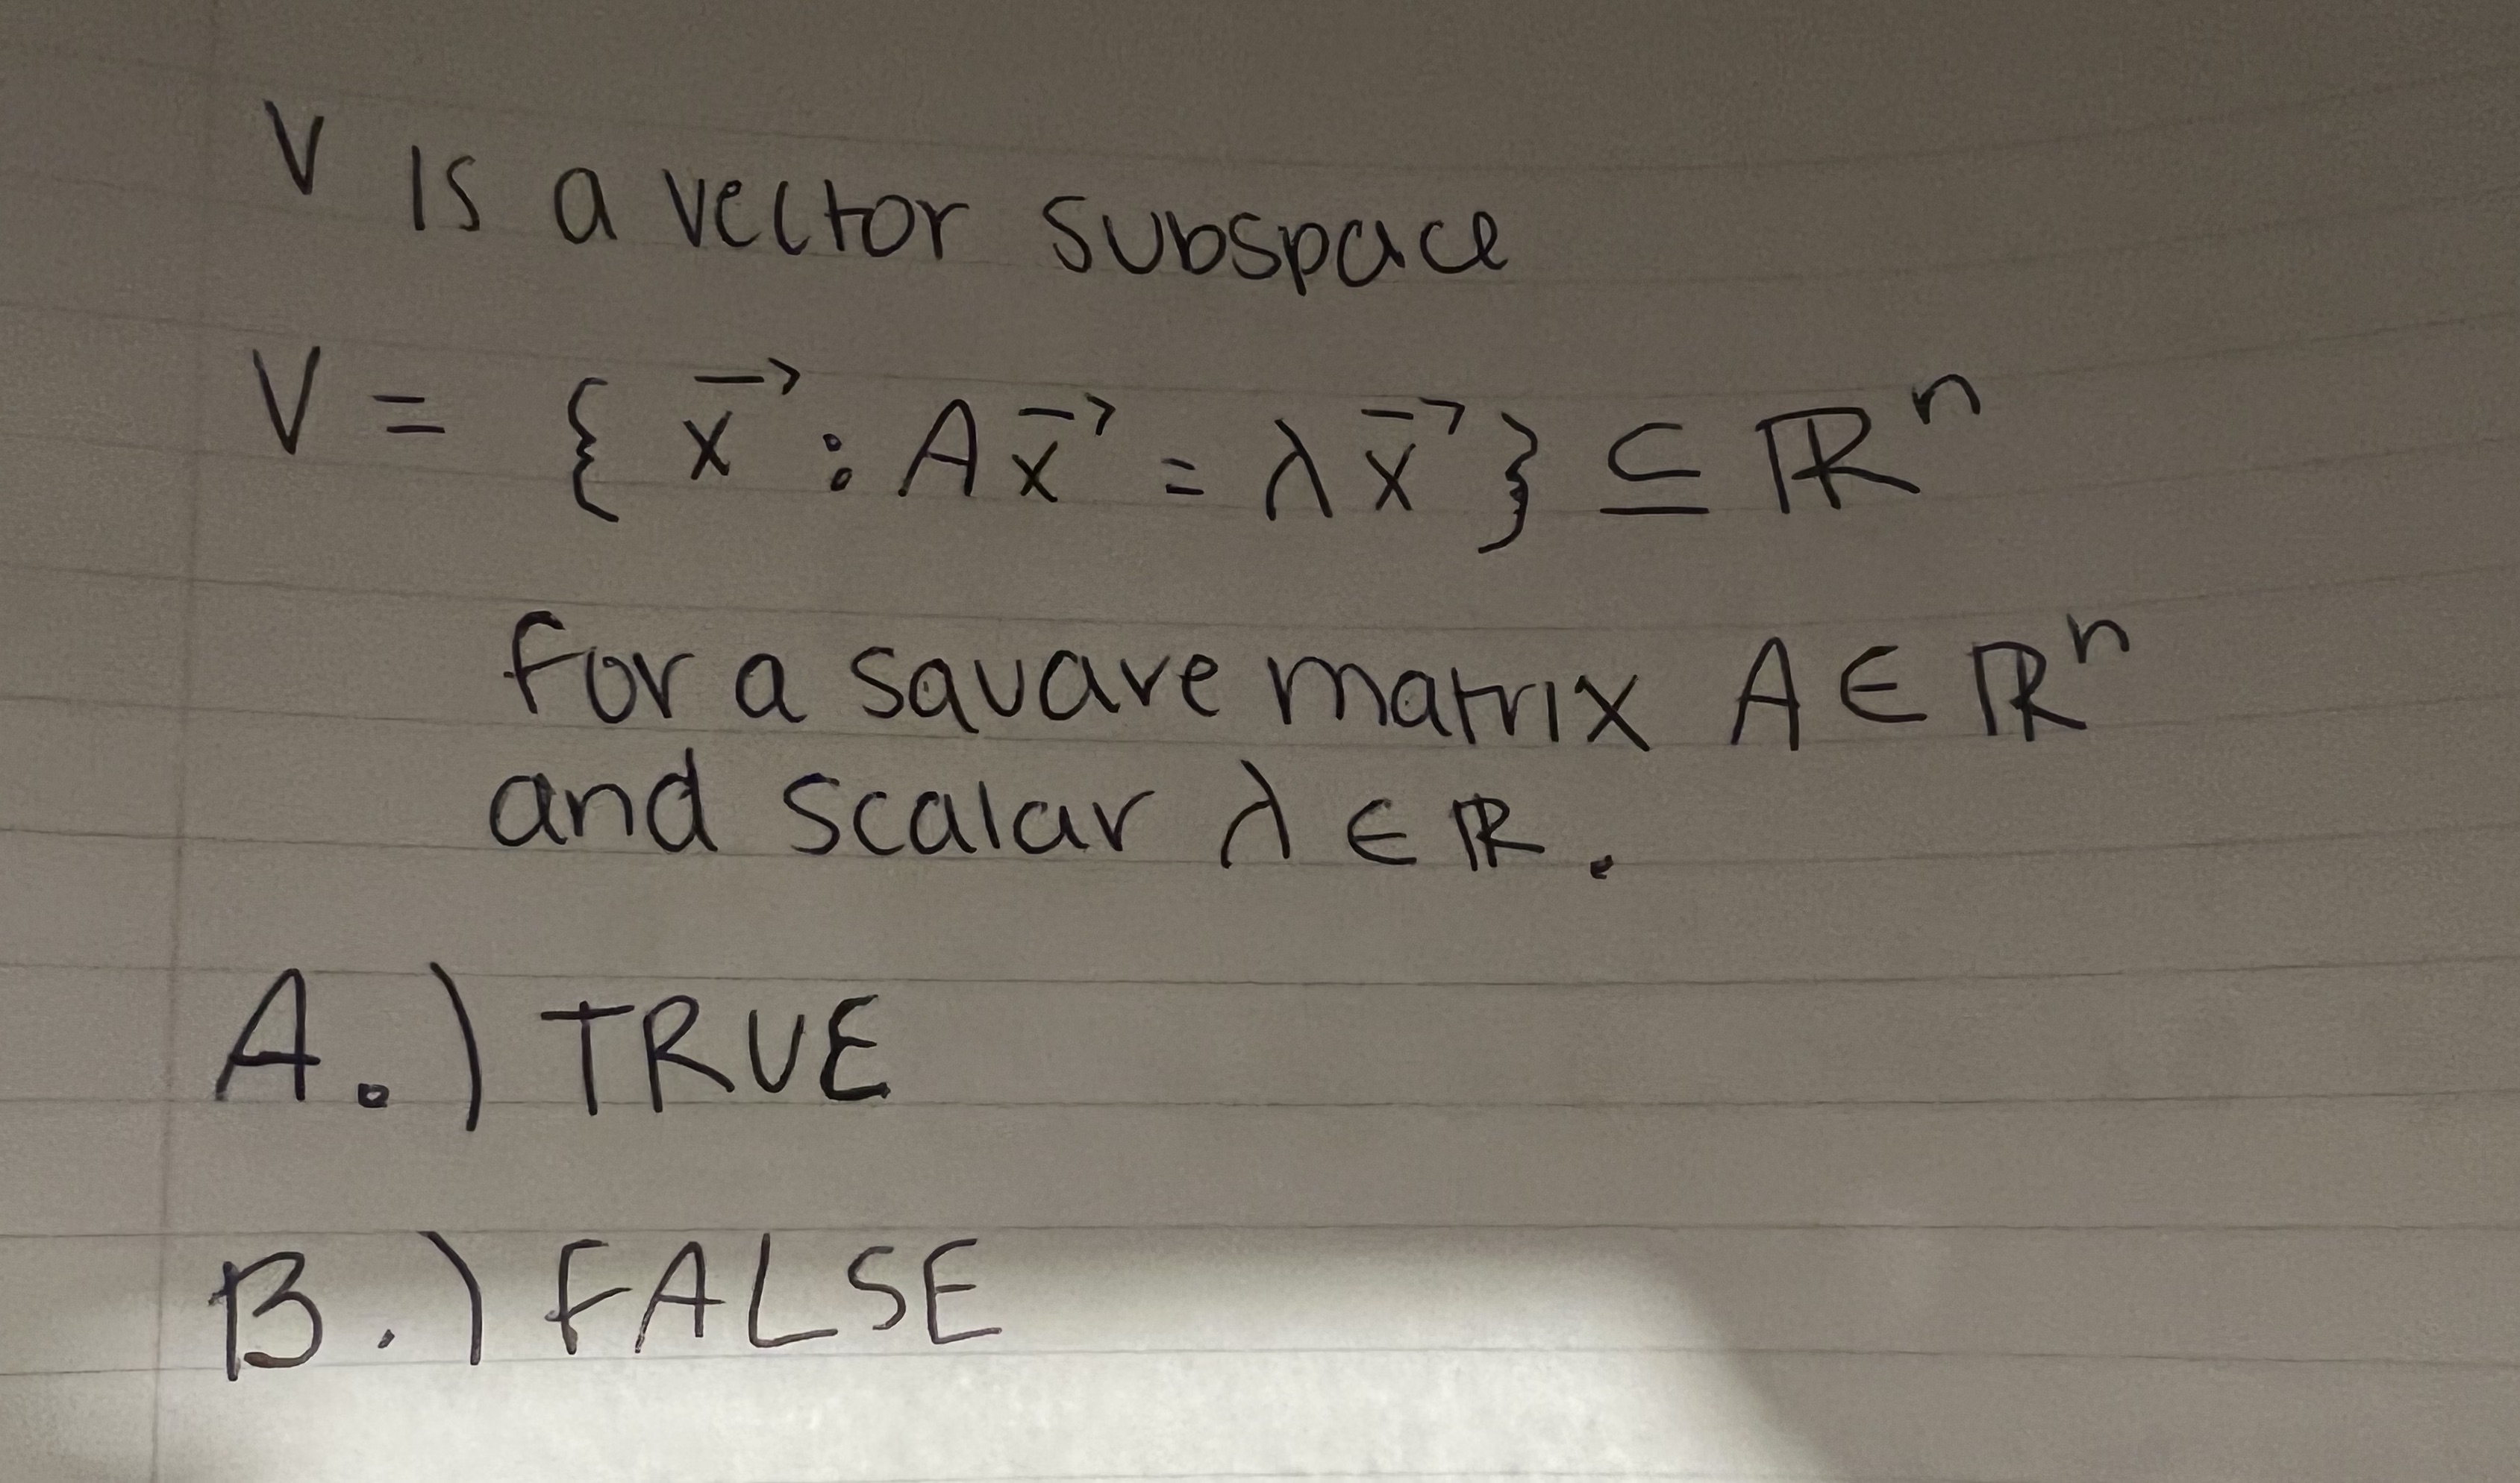 V is a vector subspace
V = { x⃗ : Ax⃗ = λx⃗ } ⊆ ℝⁿ
for a square matrix A ∈ ℝⁿ
and scalar λ ∈ ℝ.
A.) TRUE
B.) FALSE